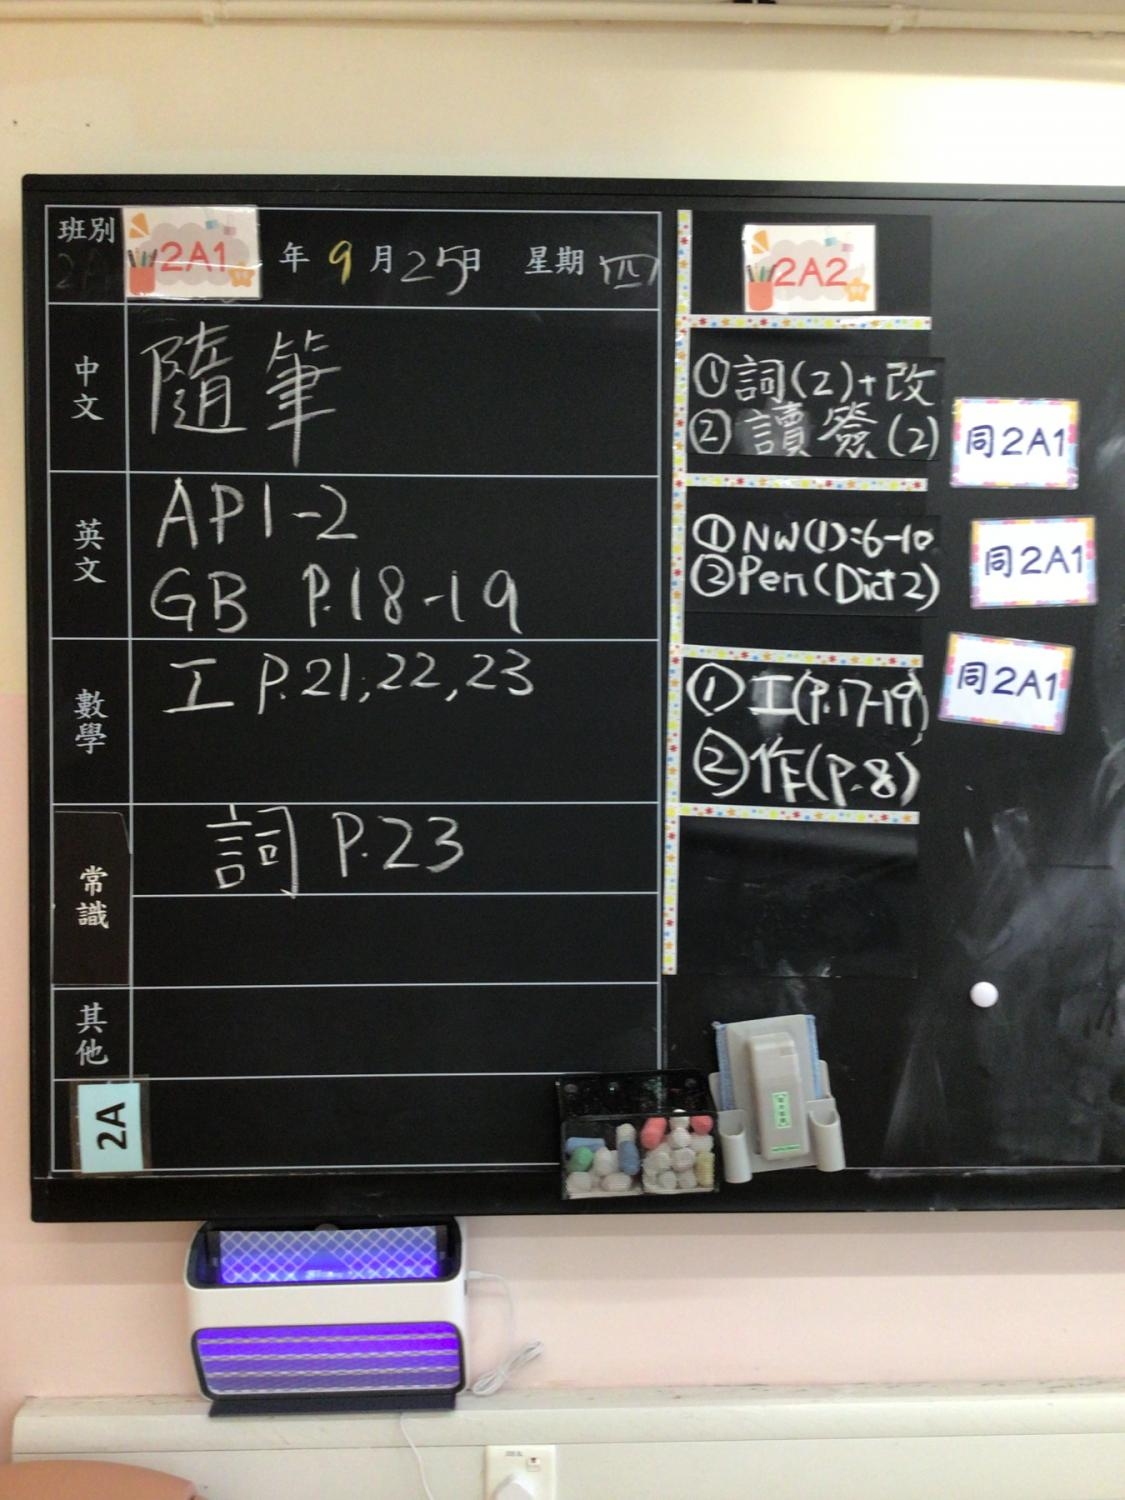 班別 2A1 年 9 月 25 日 星期 四
中文 隨筆
英文 AP1-2
GB P.18-19
數學 工 P.21,22,23
常識 詞 P.23
其他
2A
2A2
①詞(2)+改
②讀簽(2)
同2A1
①NW(1):6-10
②Pen(Dict2)
同2A1
①工(P.17-19)
②作(P.8)
同2A1